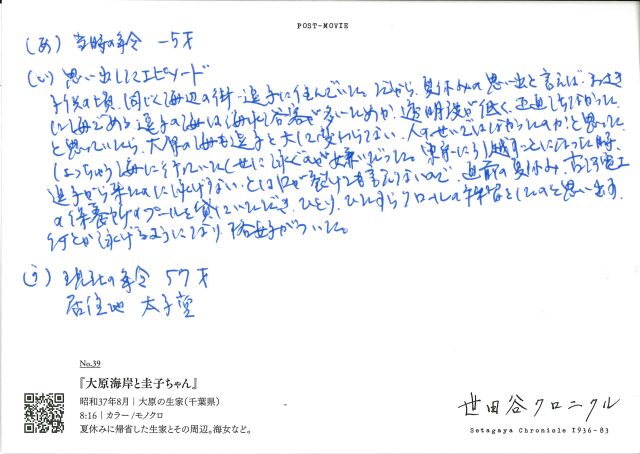 POST-MOVIE
(あ) 当時の年令 -5才
(い) 思い出してエピソード
子供の頃、同じく海辺の街・逗子に住んでいた。だから、夏休みの思い出と言えば、もっぱ
に海である。逗子の海は(海水)浴客が多いためか、透明度が低く、正直したなかった
と思っていたら、大原の海も逗子と大して変わらない。人のせいではなかったのか?と思った
しょっちゅう海に行っていたくせに泳ぐのが嫌いだった。東京に引越すことになった時、
逗子から来たのに泳げない、とは口が裂けても言えないので、直前の夏休み、古河電工
の保養所のプールを貸していただき、ひとり、ひたすらクロールの練習をしたのを思い出す
何とか泳げるようになり、格好がついた。
(う) 現在の年令 57才
居住地 太子堂
No.39
『大原海岸と圭子ちゃん』
昭和37年8月|大原の生家(千葉県)
8:16|カラー/モノクロ
夏休みに帰省した生家とその周辺。海女など。
世田谷クロニクル
Setagaya Chronicle 1936-83